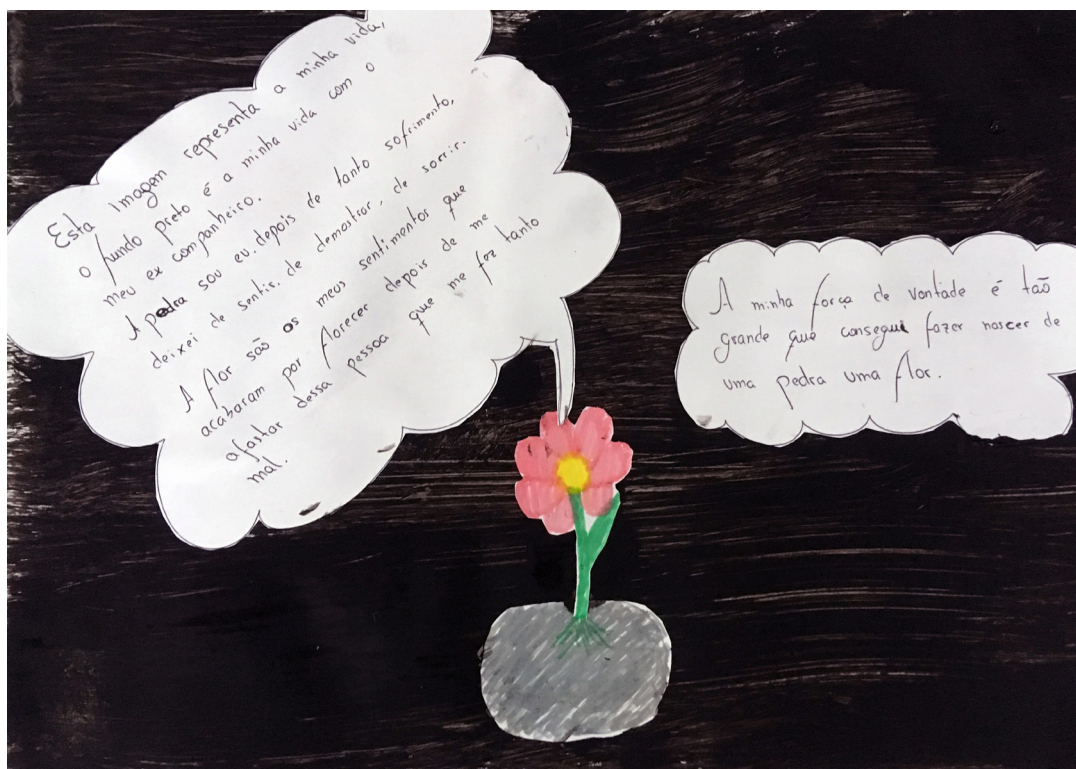 Esta imagem representa a minha vida,
o fundo preto é a minha vida com o
meu ex companheiro.
A pedra sou eu. depois de tanto sofrimento,
deixei de sentir. de demostrar, de sorrir.
A flor são os meus sentimentos que
acabaram por florecer depois de me
afastar dessa pessoa que me fez tanto
mal.
A minha força de vontade é tão
grande que consegui fazer nascer de
uma pedra uma flor.